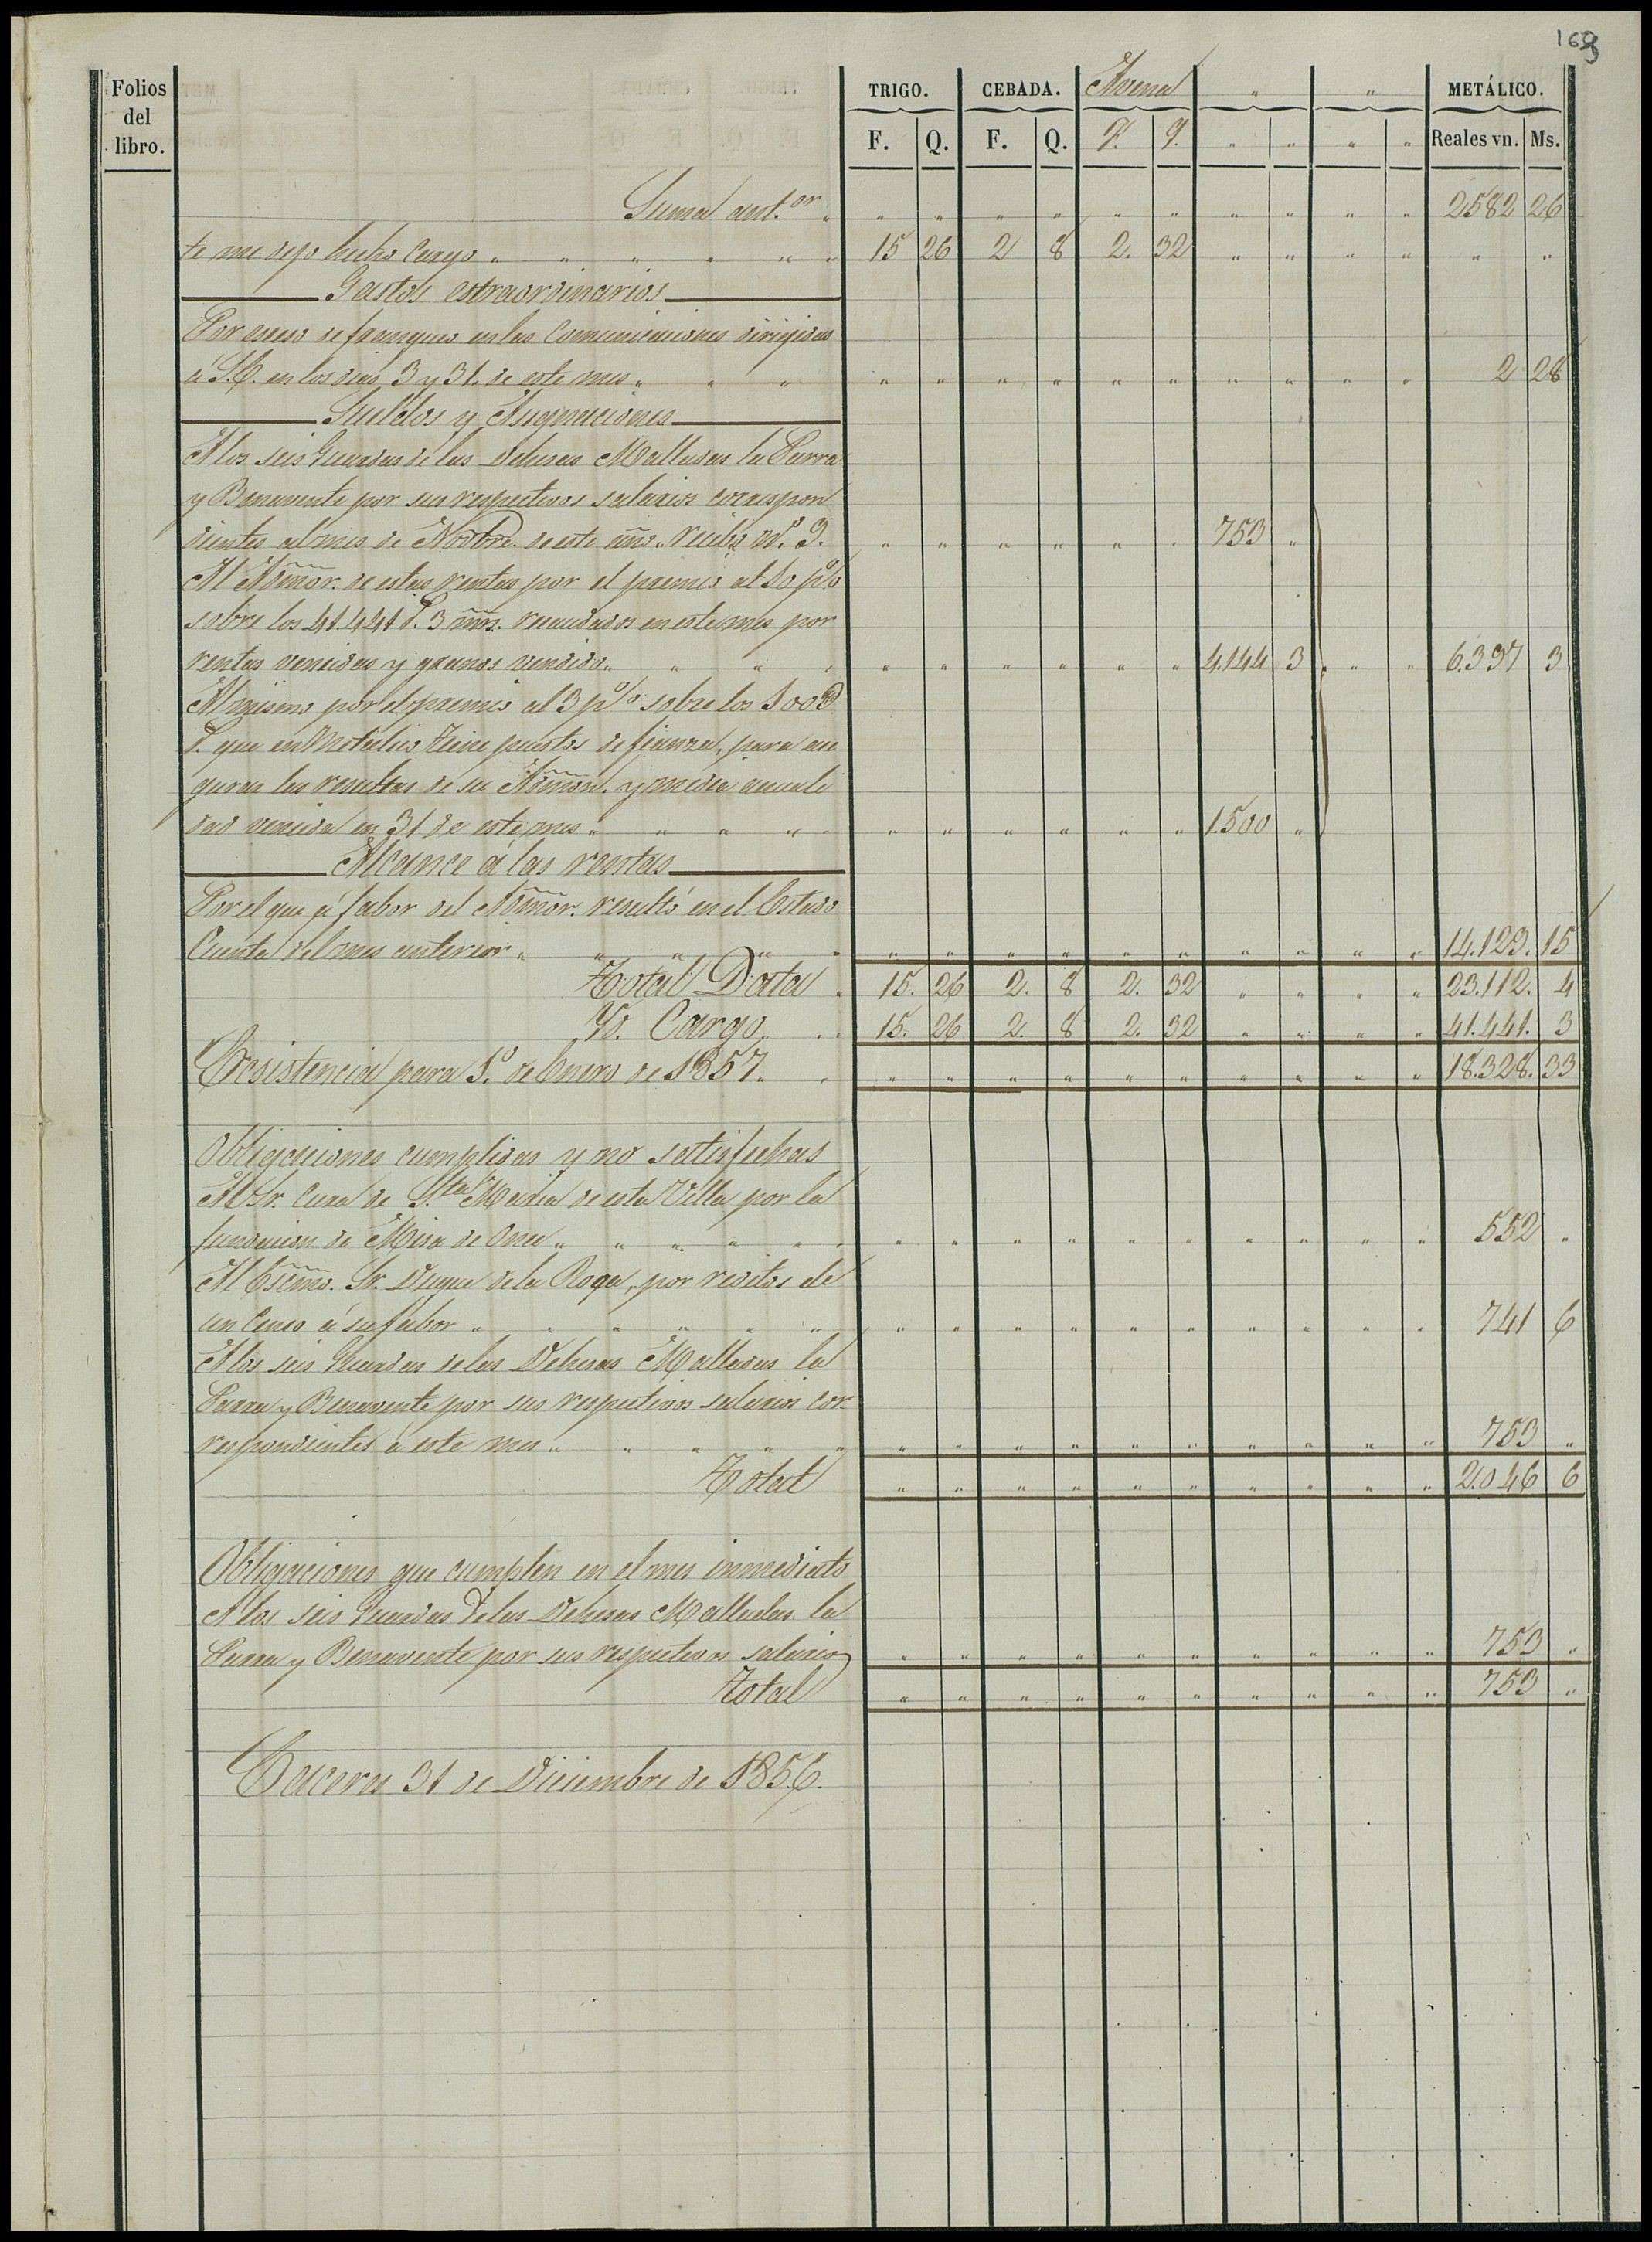 169
Folios del libro. TRIGO. CEBADA. Avena " " METÁLICO.
F. Q. F. Q. F. Q. " " " " Reales vn. Ms.
Suma ant.or " " " " " " " " " " " 2582 26
te me dejo hecho cargo " " " " " " 15 26 2 8 2. 32 " " " " " "
Gastos estraordinarios
Por esceso de franqueo en las Comunicaciones dirijidas
á S.E. en los dias 3 y 31. de este mes " " " " " " " " " " " " " 2 28
Sueldos y Asignaciones
A los seis Guardas de las Dehesas Malladas la Parra
y Benavente por sus respectivos salarios correspon
dientes al mes de Novbre. de este año. Recibo nº. 9. " " " " " " 753 "
Al Admor. de estas rentas por el premio al 10 p%
sobre los 41.441 r. 3 mrs. recaudados en este mes por
rentas vencidas y granos vendidos " " " " " " " " " 4.144 3 " " " 6.397 3
Al mismo por el premio al 3 p% sobre los 100@
r. que en Metalico tiene puestos de fianza, para ase
gurar las resultas de su Admon. y media anuali
dad vencida en 31 de este mes " " " " " " " " " " 1.500 "
Alcance á las rentas
Por el que á fabor del Admor. resultó en el Estado
Cuenta del mes anterior " " " " " " " " " " " " " " " 14.129. 15
Total Data 15. 26 2. 8 2. 32 " " " " 23.112. 4
Yd. Cargo 15. 26 2. 8 2. 32 " " " " 41.441. 3
Ecsistencia para 1º. de Enero de 1857. " " " " " " " " " " " 18.328. 33
Obligaciones cumplidas y no satisfechas
Al Sr. Cura de S.ta Maria de esta Villa por la
fundacion de Misa de Once " " " " " " " " " " " " " " " 552 "
Al Escmo. Sr. Duque de la Roca, por reditos de
un Censo á su fabor " " " " " " " " " " " " " " " 741 6
A los seis Guardas de las Dehesas Malladas la
Parra y Benavente por sus respectivos salarios cor
respondientes á este mes " " " " " " " " " " " " " " " 753 "
Total " " " " " " " " " " 2.046 6
Obligaciones que cumplen en el mes inmediato
A los seis Guardas de las Dehesas Malladas la
Parra y Benavente por sus respectivos salarios " " " " " " " " " " 753 "
Total " " " " " " " " " " 753 "
Caceres 31 de Diciembre de 1856.